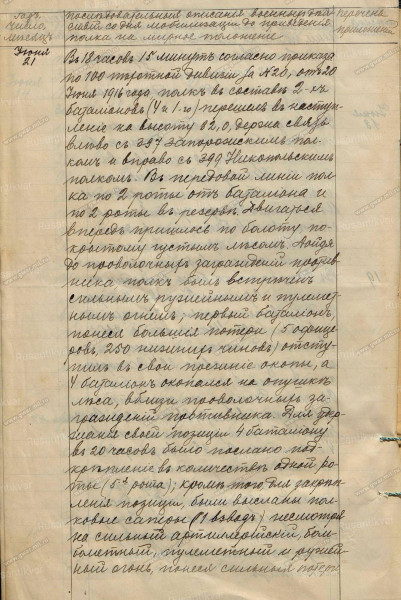 Годъ, число, мѣсяцъ
Послѣдовательныя описанія военныхъ дѣй-
ствій со дня мобилизаціи до приведенія
полка на мирное положеніе
Перечень приложеній
Іюня
21
Въ 18 часовъ 15 минутъ согласно приказа
по 100 пѣхотной дивизіи за № 20, отъ 20
Іюня 1916 года полкъ въ составѣ 2-хъ
батальоновъ (4 и 1-го) перешелъ въ наступ-
леніе на высоту 82,0, держа связь
влѣво съ 397 Запорожскимъ пол-
комъ и вправо съ 399 Никопольскимъ
полкомъ. Въ передовой линіи пол-
ка по 2 роты отъ батальона и
по 2 роты въ резервѣ. Двигаться
впередъ пришлось по болоту по-
крытому густымъ лѣсомъ. Дойдя
до проволочныхъ загражденій против-
ника полкъ былъ встрѣченъ
сильнымъ ружейнымъ и пулемет-
нымъ огнемъ; первый батальонъ,
понеся большія потери (5 офице-
ровъ, 250 нижнихъ чиновъ) отсту-
пилъ въ свои прежніе окопы, а
4 батальонъ окопался на опушкѣ
лѣса, вблизи проволочныхъ за-
гражденій противника. Для удер-
жанія своей позиціи 4 баталіону
въ 20 часовъ было послано под-
крѣпленіе въ количествѣ одной ро-
ты (5-я рота); кромѣ того для закрѣп-
ленія позиціи, были высланы пол-
ковые саперы (1 взводъ) несмотря
на сильный артиллерійскій, бом-
бометный, пулеметный и ружей-
ный огонь, понеся сильныя потери